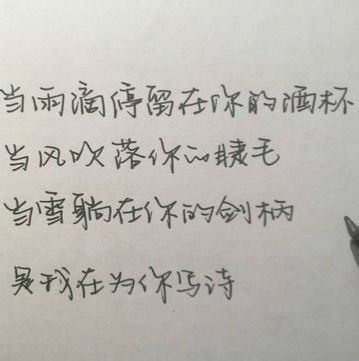 当雨滴停留在你的酒杯
当风吹落你的睫毛
当雪躺在你的剑柄
是我在为你写诗